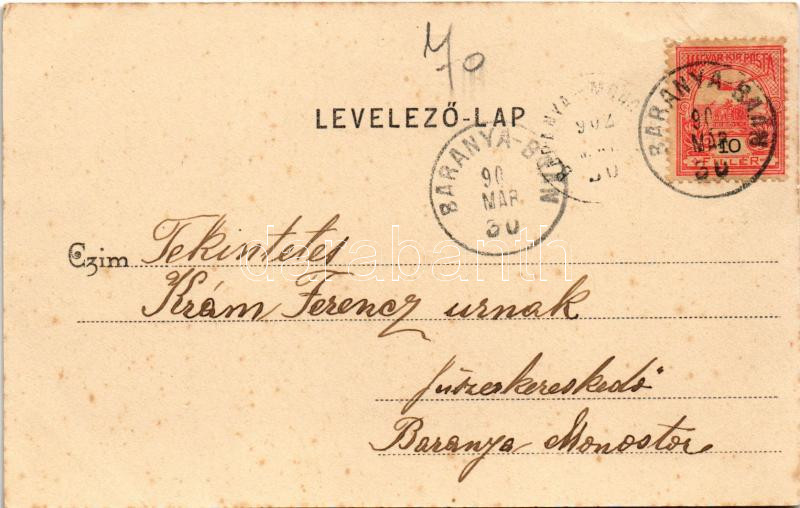 Yo
LEVELEZŐ-LAP
MAGYAR KIR. POSTA
10
FILLÉR
BARANYA-BAÁN
90
MAR
30
BARANYA-BAÁN
90
MAR.
30
902
30
Czim Tekintetes
Krám Ferencz urnak
fűszerkereskedő
Baranya Monostor
darabanth